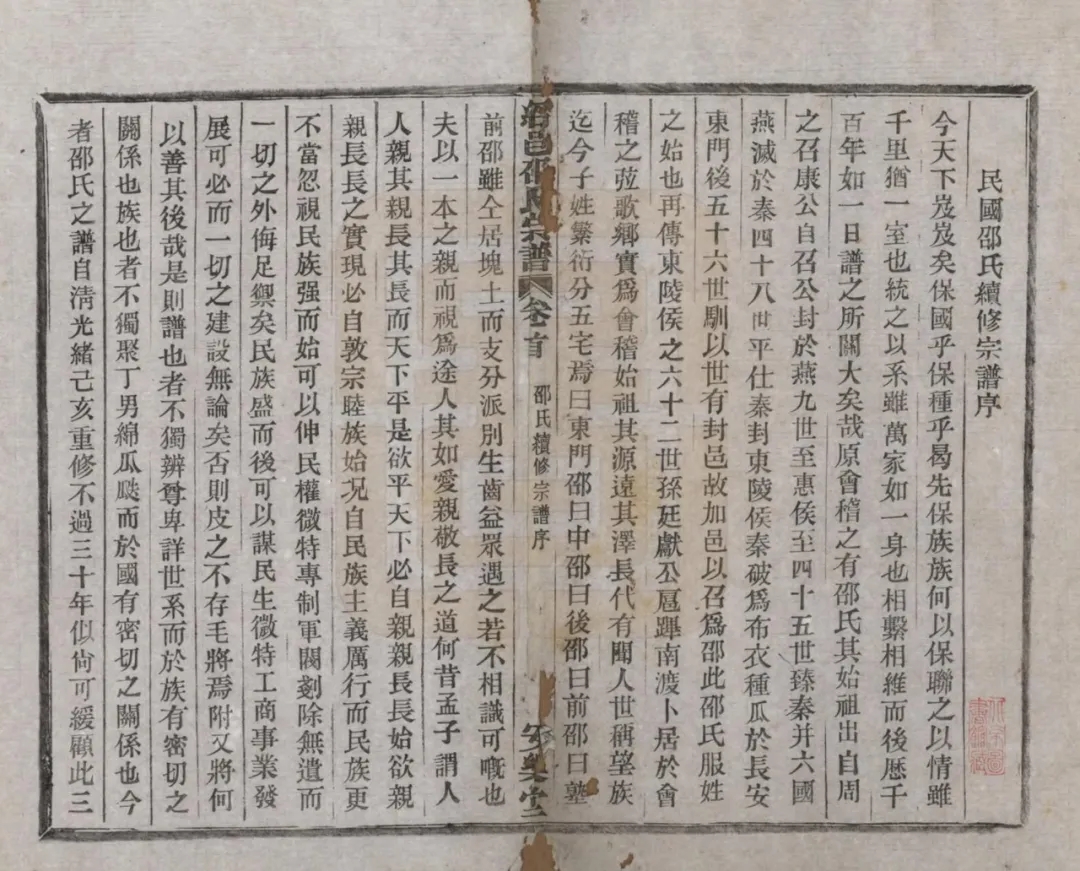 民國邵氏續修宗譜序
今天下岌岌矣保國乎保種乎曷先保族族何以保聯之以情雖
千里猶一室也統之以系雖萬家如一身也相繫相維而後歷千
百年如一日譜之所關大矣哉原會稽之有邵氏其始祖出自周
之召康公自召公封於燕九世至惠侯至四十五世臻秦并六國
燕滅於秦四十八世平仕秦封東陵侯秦破爲布衣種瓜於長安
東門後五十六世馴以世有封邑故加邑以召爲邵此邵氏服姓
之始也再傳東陵侯之六十二世孫廷獻公扈蹕南渡卜居於會
稽之弦歌鄉實爲會稽始祖其源遠其澤長代有聞人世稱望族
迄今子姓繁衍分五宅焉曰東門邵曰中邵曰後邵曰前邵曰塾
邑邵氏宗譜 卷首 邵氏續修宗譜序 安樂堂
前邵雖仝居塊土而支分派別生齒益眾遇之若不相識可嘅也
夫以一本之親而視爲途人其如愛親敬長之道何昔孟子謂人
人親其親長其長而天下平是欲平天下必自親親長長始欲親
親長長之實現必自敦宗睦族始况自民族主義厲行而民族更
不當忽視民族强而始可以伸民權微特專制軍閥剗除無遺而
一切之外侮足禦矣民族盛而後可以謀民生微特工商事業發
展可必而一切之建設無論矣否則皮之不存毛將焉附又將何
以善其後哉是則譜也者不獨辨尊卑詳世系而於族有密切之
關係也族也者不獨聚丁男綿瓜瓞而於國有密切之關係也今
者邵氏之譜自淸光緒己亥重修不過三十年似尙可緩顧此三